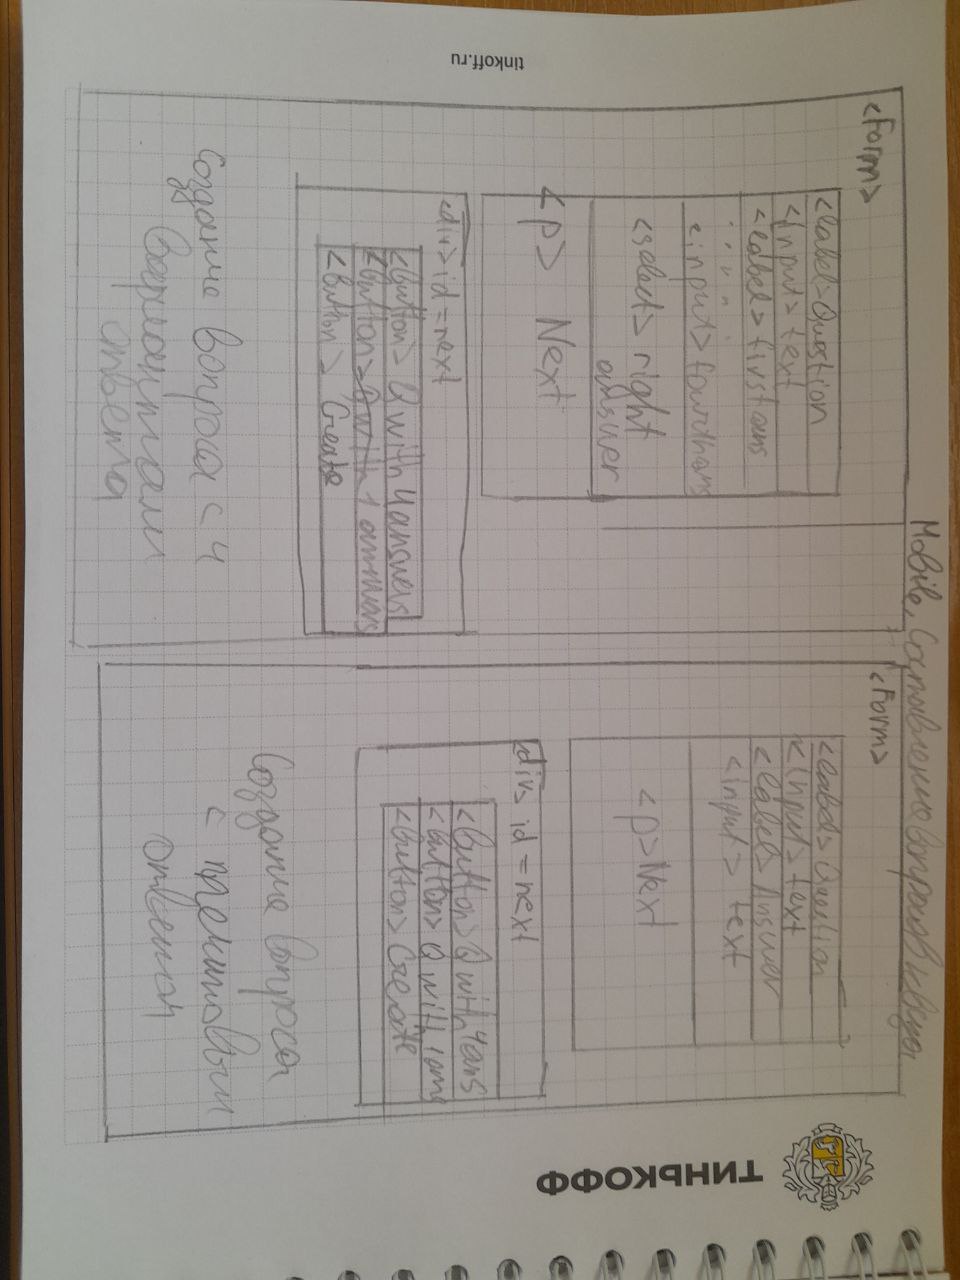 Mobile, Составление вопросов квиза
<Form>
<label> Question
<input> text
<label> first ans
<input> fourth ans
<select> right
answer
<p> Next
<div> id = next
<button> Q with 4 answers
<button> Q with 1 answers
<button> Create
Создание вопроса с 4
Вариантами
ответа
<Form>
<label> Question
<input> text
<label> Answer
<input> text
<p> Next
<div> id = next
<button> Q with 4 ans
<button> Q with 1 ans
<button> Create
Создание вопроса
с
ответом
ТИНЬКОФФ
tinkoff.ru